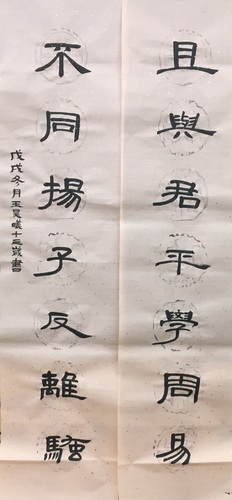 且與君平學周易
不同揚子反離騷
戊戌冬月王昊曦十三歲書